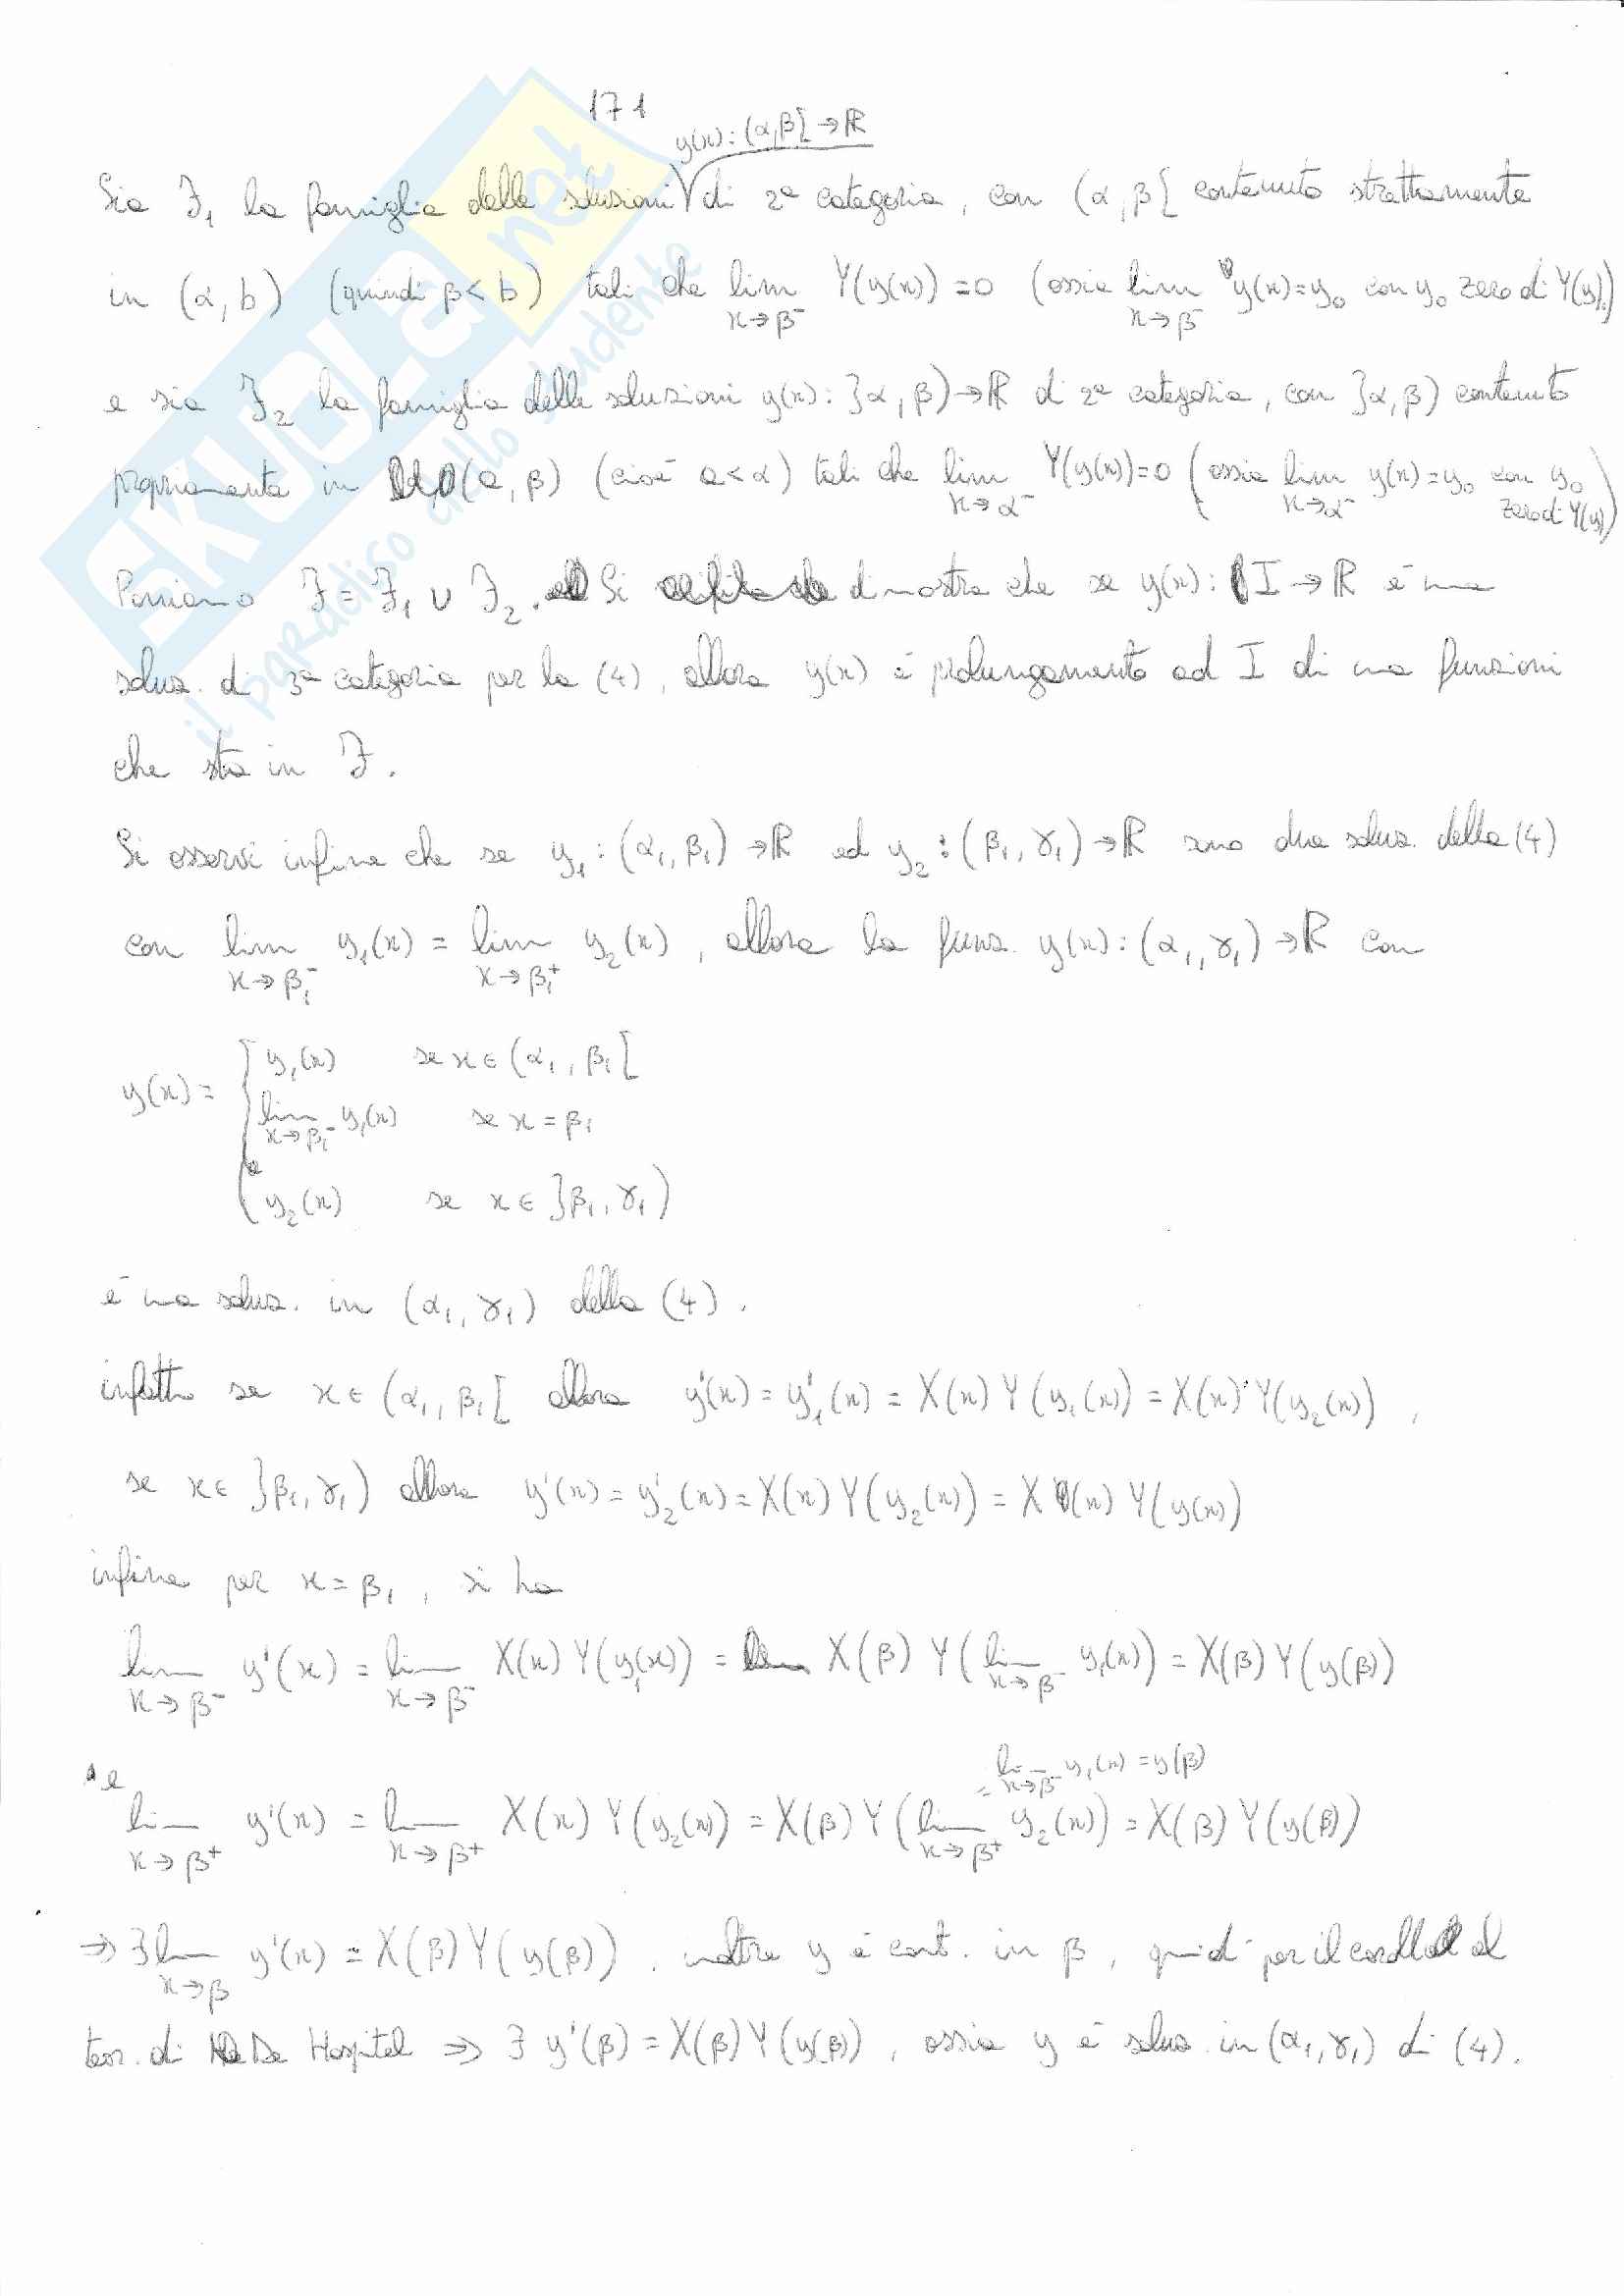 171
y(x): (α,β[ → ℝ
Sia F₁ la famiglia delle soluzioni di 2ª categoria, con (α,β[ contenuto strettamente
in (α,b) (quindi β<b) tali che lim x→β⁻ Y(y(x))=0 (ossia lim x→β⁻ y(x)=y₀ con y₀ zero di Y(y).)
e sia F₂ la famiglia delle soluzioni y(x): ]α,β)→ℝ di 2ª categoria, con ]α,β) contenuto
propriamente in (a,β) (cioè a<α) tali che lim x→α⁻ Y(y(x))=0 (ossia lim x→α⁻ y(x)=y₀ con y₀ zero di Y(y))
Poniamo F = F₁ ∪ F₂. Si dimostra che se y(x): I → ℝ è una
soluz. di 3ª categoria per la (4), allora y(x) è prolungamento ad I di una funzioni
che sta in F.
Si osservi infine che se y₁: (α₁,β₁) → ℝ ed y₂: (β₁,γ₁) → ℝ sono due soluz. della (4)
con lim x→β₁⁻ y₁(x) = lim x→β₁⁺ y₂(x), allora la funz. y(x): (α₁,γ₁) → ℝ con
y(x) = { y₁(x) se x ∈ (α₁,β₁[
lim x→β₁⁻ y₁(x) se x = β₁
y₂(x) se x ∈ ]β₁,γ₁)
è una soluz. in (α₁,γ₁) della (4).
infatti se x ∈ (α₁,β₁[ allora y'(x) = y₁'(x) = X(x) Y(y₁(x)) = X(x) Y(y₂(x)),
se x ∈ ]β₁,γ₁) allora y'(x) = y₂'(x) = X(x) Y(y₂(x)) = X(x) Y(y(x))
infine per x = β₁, si ha
lim x→β⁻ y'(x) = lim x→β⁻ X(x) Y(y₁(x)) = X(β) Y(lim x→β⁻ y₁(x)) = X(β) Y(y(β))
= lim x→β⁻ y₁(x) = y(β)
e lim x→β⁺ y'(x) = lim x→β⁺ X(x) Y(y₂(x)) = X(β) Y(lim x→β⁺ y₂(x)) = X(β) Y(y(β))
⇒ ∃ lim x→β y'(x) = X(β) Y(y(β)). inoltre y è cont. in β, quindi per il coroll. al
teor. di De Hospital ⇒ ∃ y'(β) = X(β) Y(y(β)), ossia y è soluz. in (α₁,γ₁) di (4).
SKUOLA.net
il paradiso dello studente